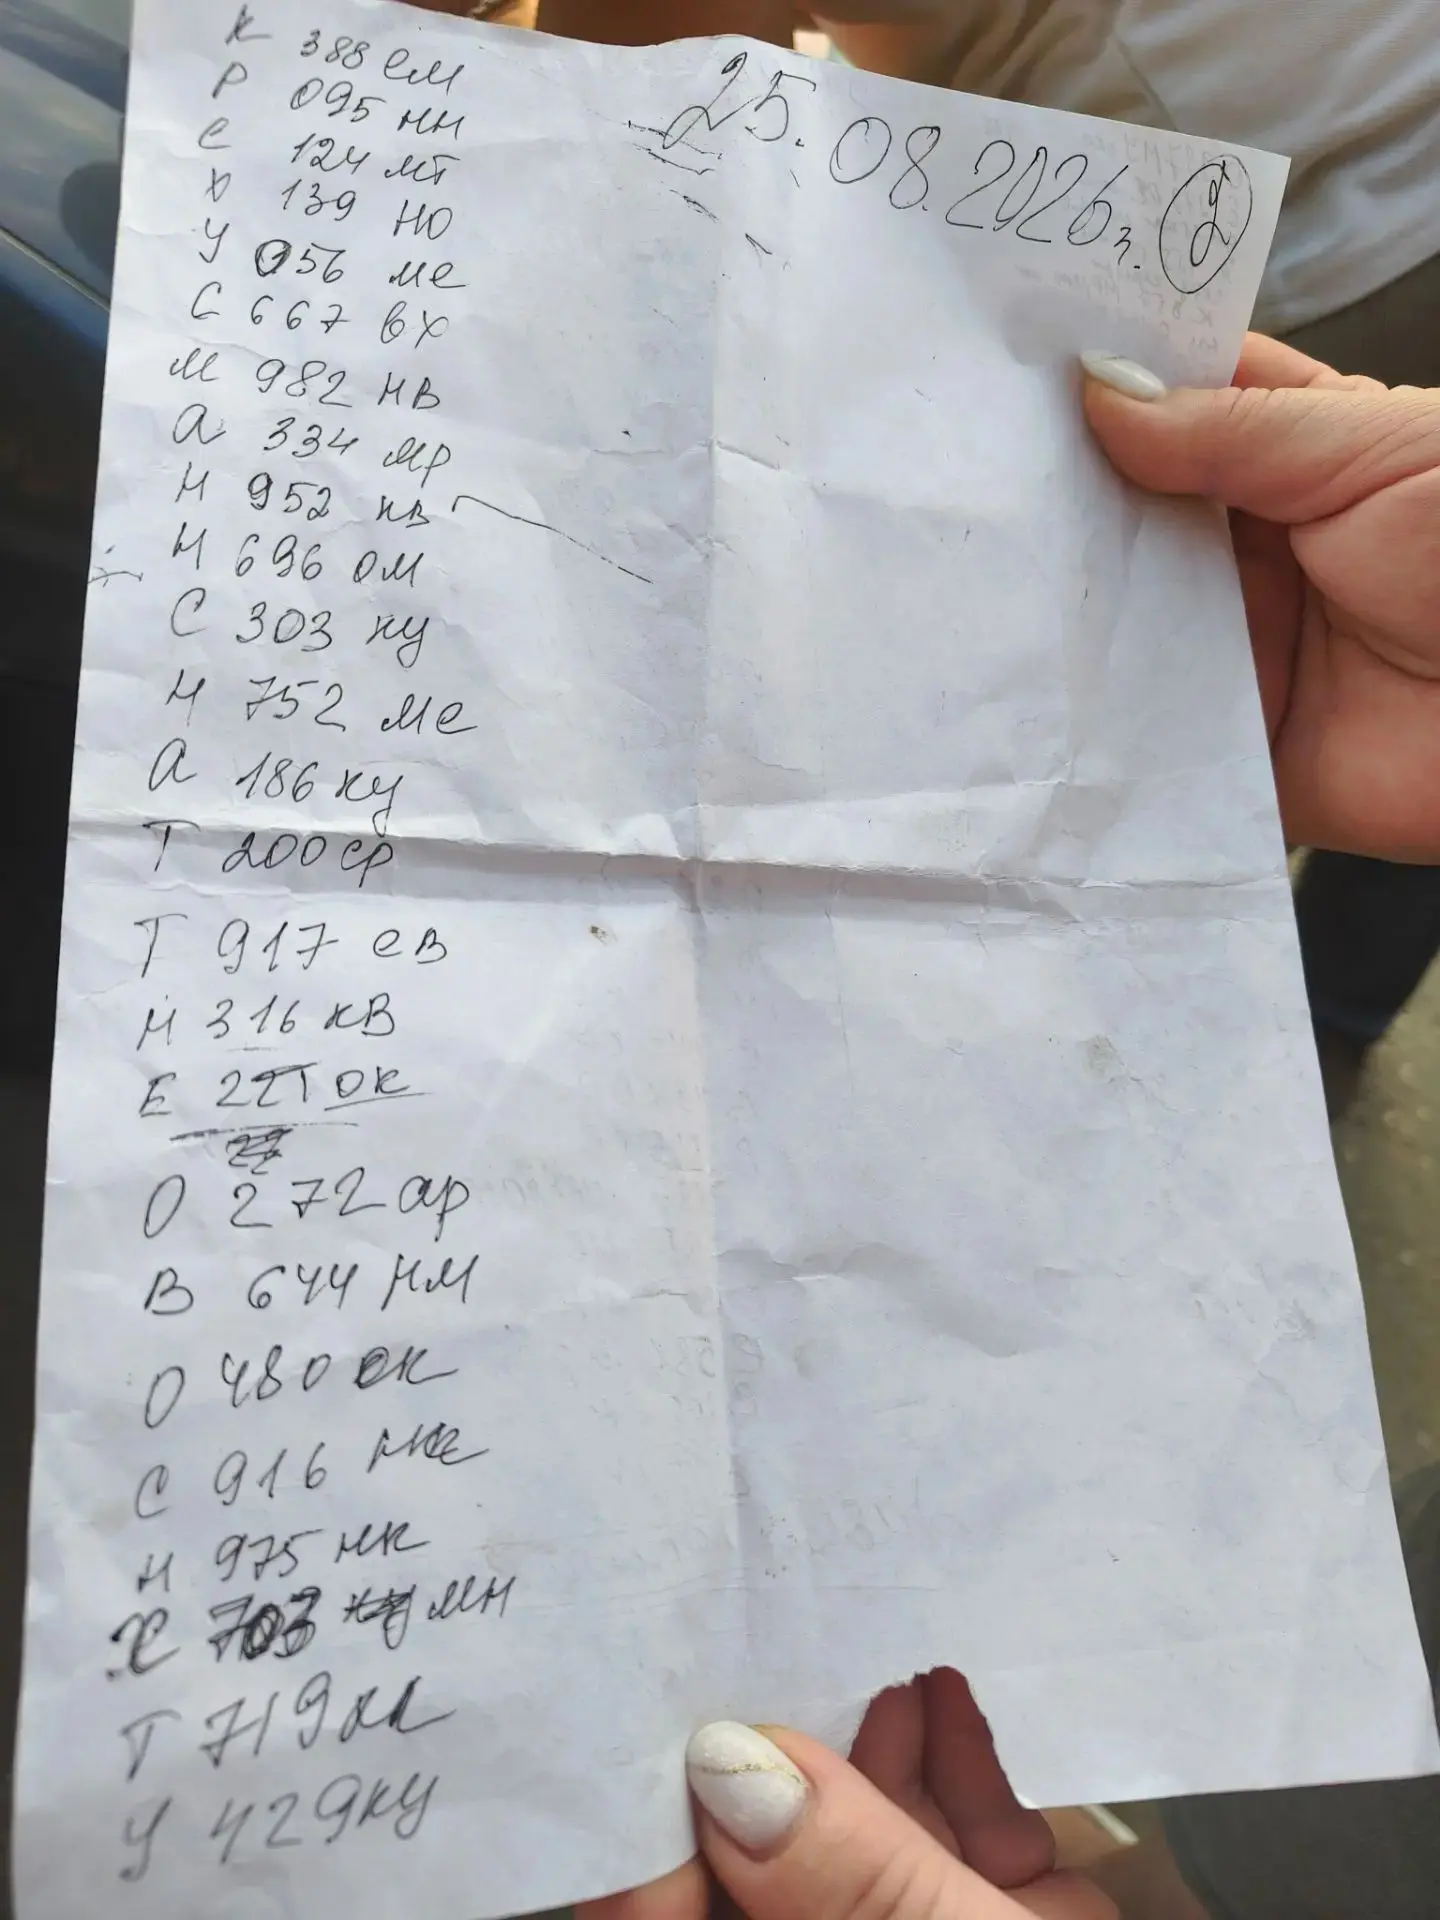 25.08.2026г. 2
К 388 ем
Р 095 нн
С 124 мт
Х 139 но
У 056 ме
С 667 вх
М 982 нв
А 334 мр
Н 952 кв
Н 696 ом
С 303 ку
Н 752 ме
А 186 ку
Т 200 ср
Т 917 ев
Н 316 кв
Е 227 ок
О 272 ар
В 644 нм
О 480 ок
С 916
Н 975 нк
Х 703 мн
Т 719
У 429 ку